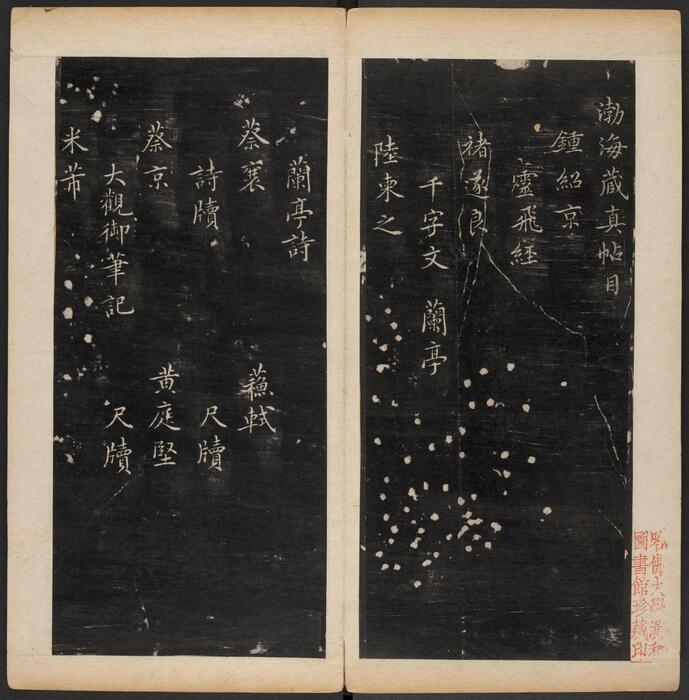 渤海蔵真帖目
鍾紹京
靈飛經
褚遂良
千字文 蘭亭
陸柬之
蘭亭詩
蔡襄 蘓軾
詩牘 尺牘
蔡京 黃庭堅
大觀御筆記 尺牘
米芾
哈佛大學漢和
圖書館珍藏印